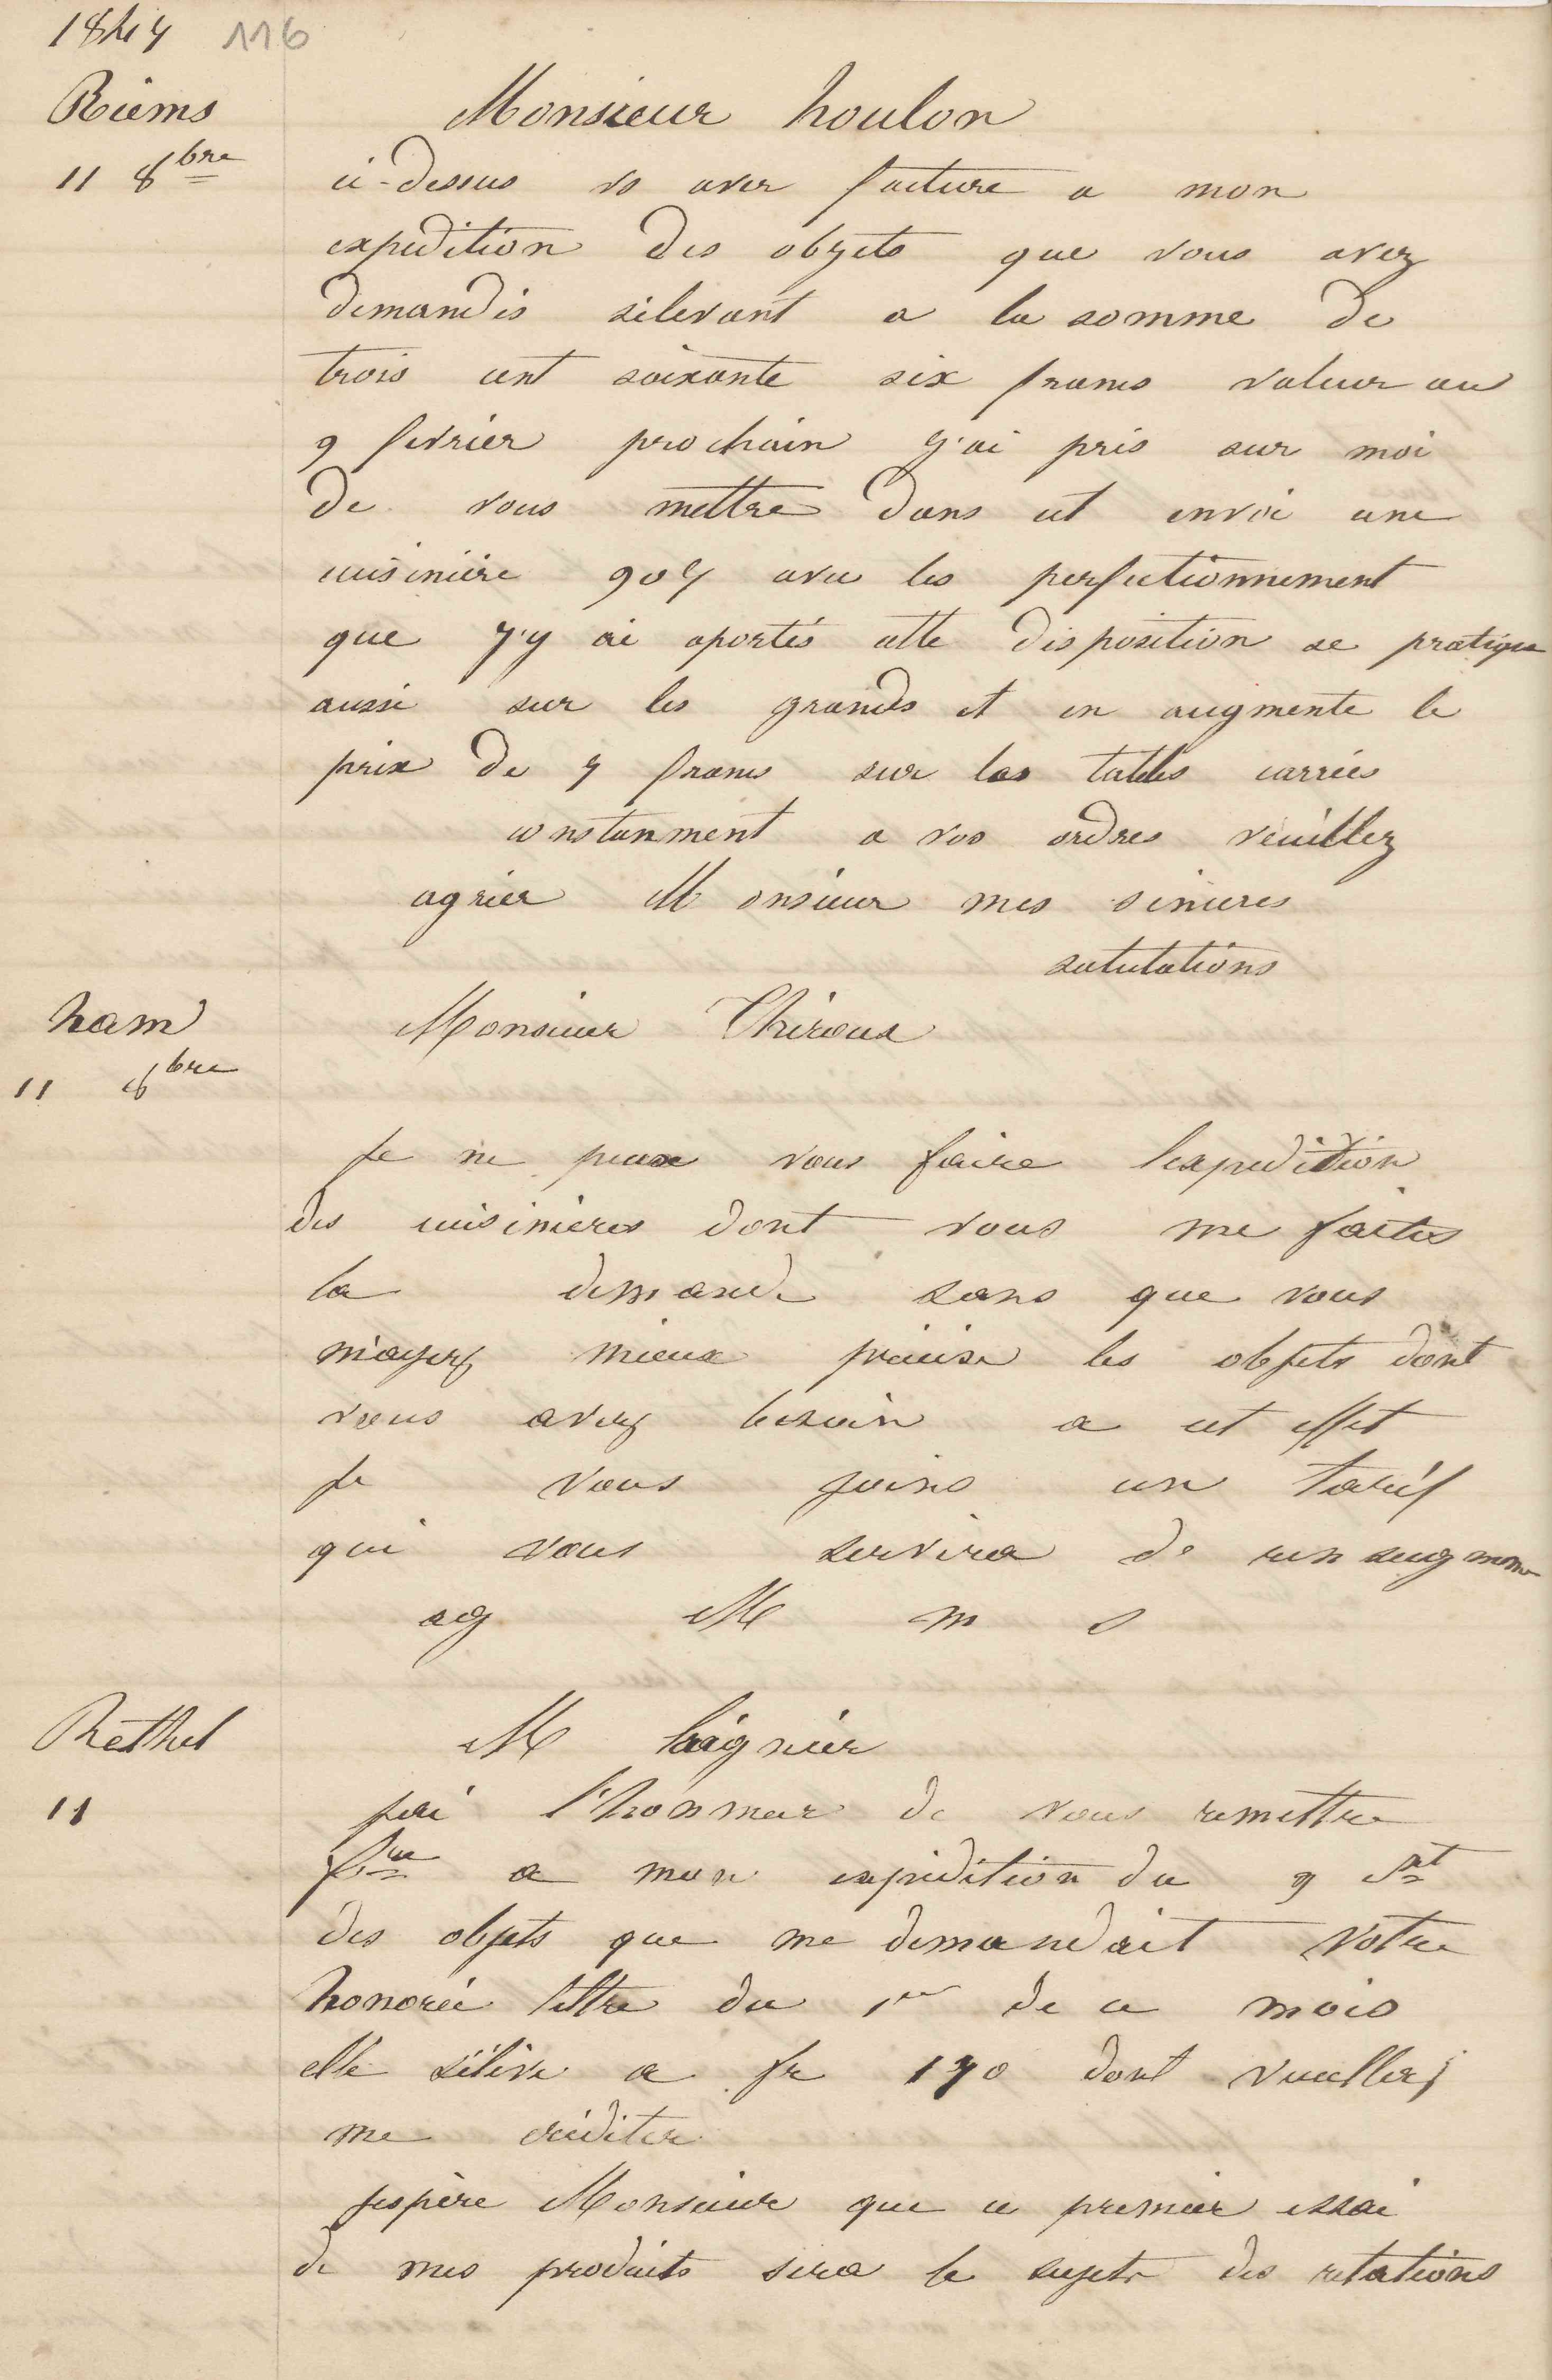 1844 116
Reims
11 8bre
Monsieur houlon
ci-dessus vs avez facture a mon
expedition des objets que vous avez
demandés sélevant a la somme de
trois cent soixante six francs valeur au
9 fevrier prochain j'ai pris sur moi
de vous mettre dans cet envoi une
cuisinière 904 avec les perfectionnement
que j'y ai aportés cette disposition se pratique
aussi sur les grandes et en augmente le
prix de 4 francs sur les tables carrées
constanment a vos ordres veuillez
agréer Monsieur mes sinceres
salutations
ham
11 8bre
Monsieur Thiroux
Je ne peux vous faire lexpedition
des cuisinieres dont vous me faites
la demande sans que vous
m'ayez mieux précisé les objets dont
vous avez besoin a cet effet
je vous joins un tarif
qui vous servira de renseignem
ag M m s
Rethel
11
M laignier
jai l'honneur de vous remettre
fre a mon expédition du 9 ct
des objets que me demandait votre
honorée lettre du 1er de ce mois
elle sélève a fr 140 dont veuillez
me créditer
jespère Monsieur que ce premier essai
de mes produits sera le sujet des relations